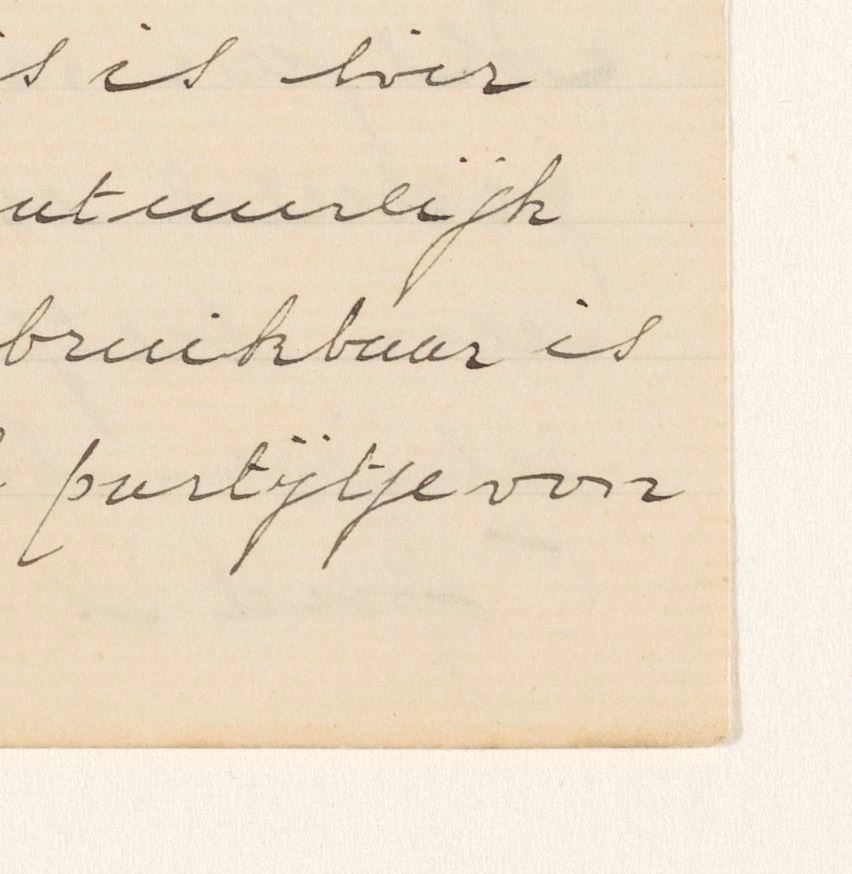 is is hier
atuurlijk
bruikbaar is
partijtje voor